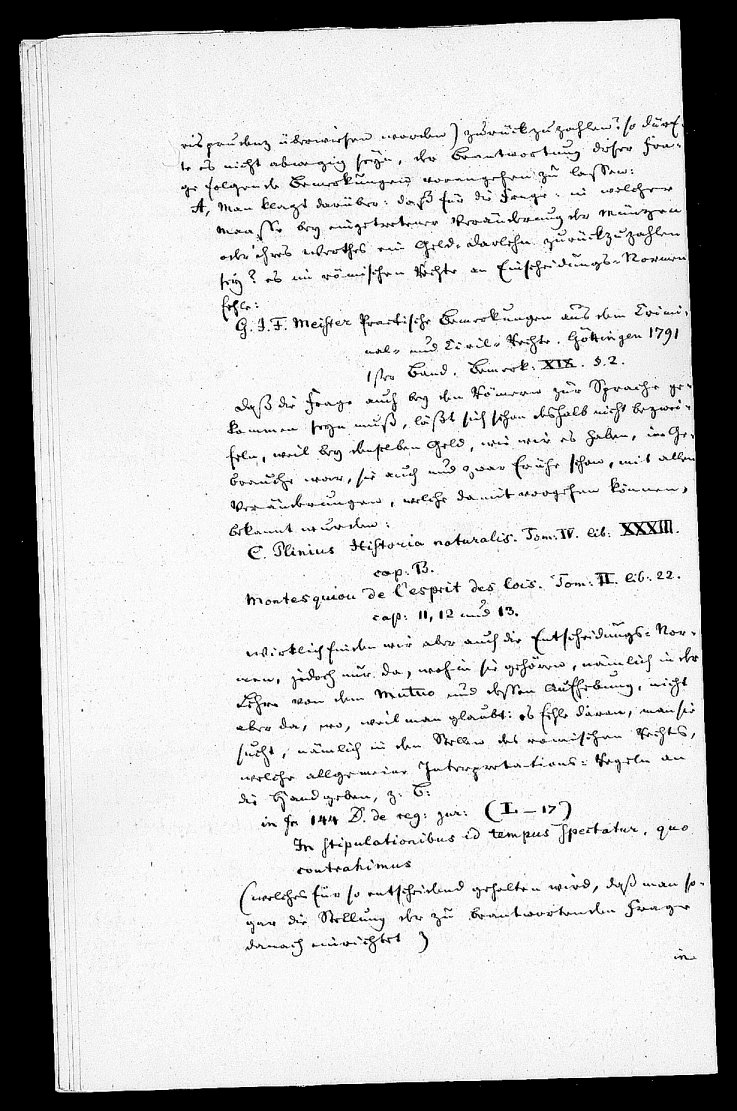 risprudenz überwiesen worden) zurückzuzahlen? so dürf-
te es nicht abwegig seyn, der Beantwortung dieser Fra-
ge folgende Bemerkungen vorangehen zu lassen:
A, Man klagt darüber: daß für die Frage: in welcher
Maasse bey eingetretener Veränderung der Münzen
oder ihres Werthes ein Geld-Darlehn zurückzuzahlen
sey? es im römischen Rechte an Entscheidungs-Normen
fehle:
G. J. F. Meister Practische Bemerkungen aus dem Crimi-
nal- und Civil-Rechte. Göttingen 1791
1ster Band. Bemerk: XIX. §. 2.
Daß die Frage auch bey den Römern zur Sprache ge-
kommen seyn muß, läßt sich schon deshalb nicht bezwei-
feln, weil bey denselben Geld, wie wir es haben, im Ge-
brauche war, sie auch und zwar frühe schon, mit allen
Veränderungen, welche damit vorgehen können,
bekannt wurden:
C. Plinius Historia naturalis. Tom: IV. lib: XXXIII.
cap: B.
Montesquiou de l'esprit des lois. Tom: II. lib: 22.
cap: 11, 12 und 13.
Wirklich finden wir aber auch die Entscheidungs-Nor-
men, jedoch nur da, wohin sie gehören, nämlich in der
Lehre von dem Mutuo und dessen Aufhebung, nicht
aber da, wo, weil man glaubt: es fehle daran, man sie
sucht, nämlich in den Stellen des römischen Rechts,
welche allgemeine Interpretations-Regeln an
die Hand geben, z: B:
in fr 144 D. de reg: jur: (L – 17)
In stipulationibus id tempus spectatur, quo
contrahimus
(welches für so entscheidend gehalten wird, daß man so-
gar die Stellung der zu beantwortenden Frage
danach einrichtet)
in